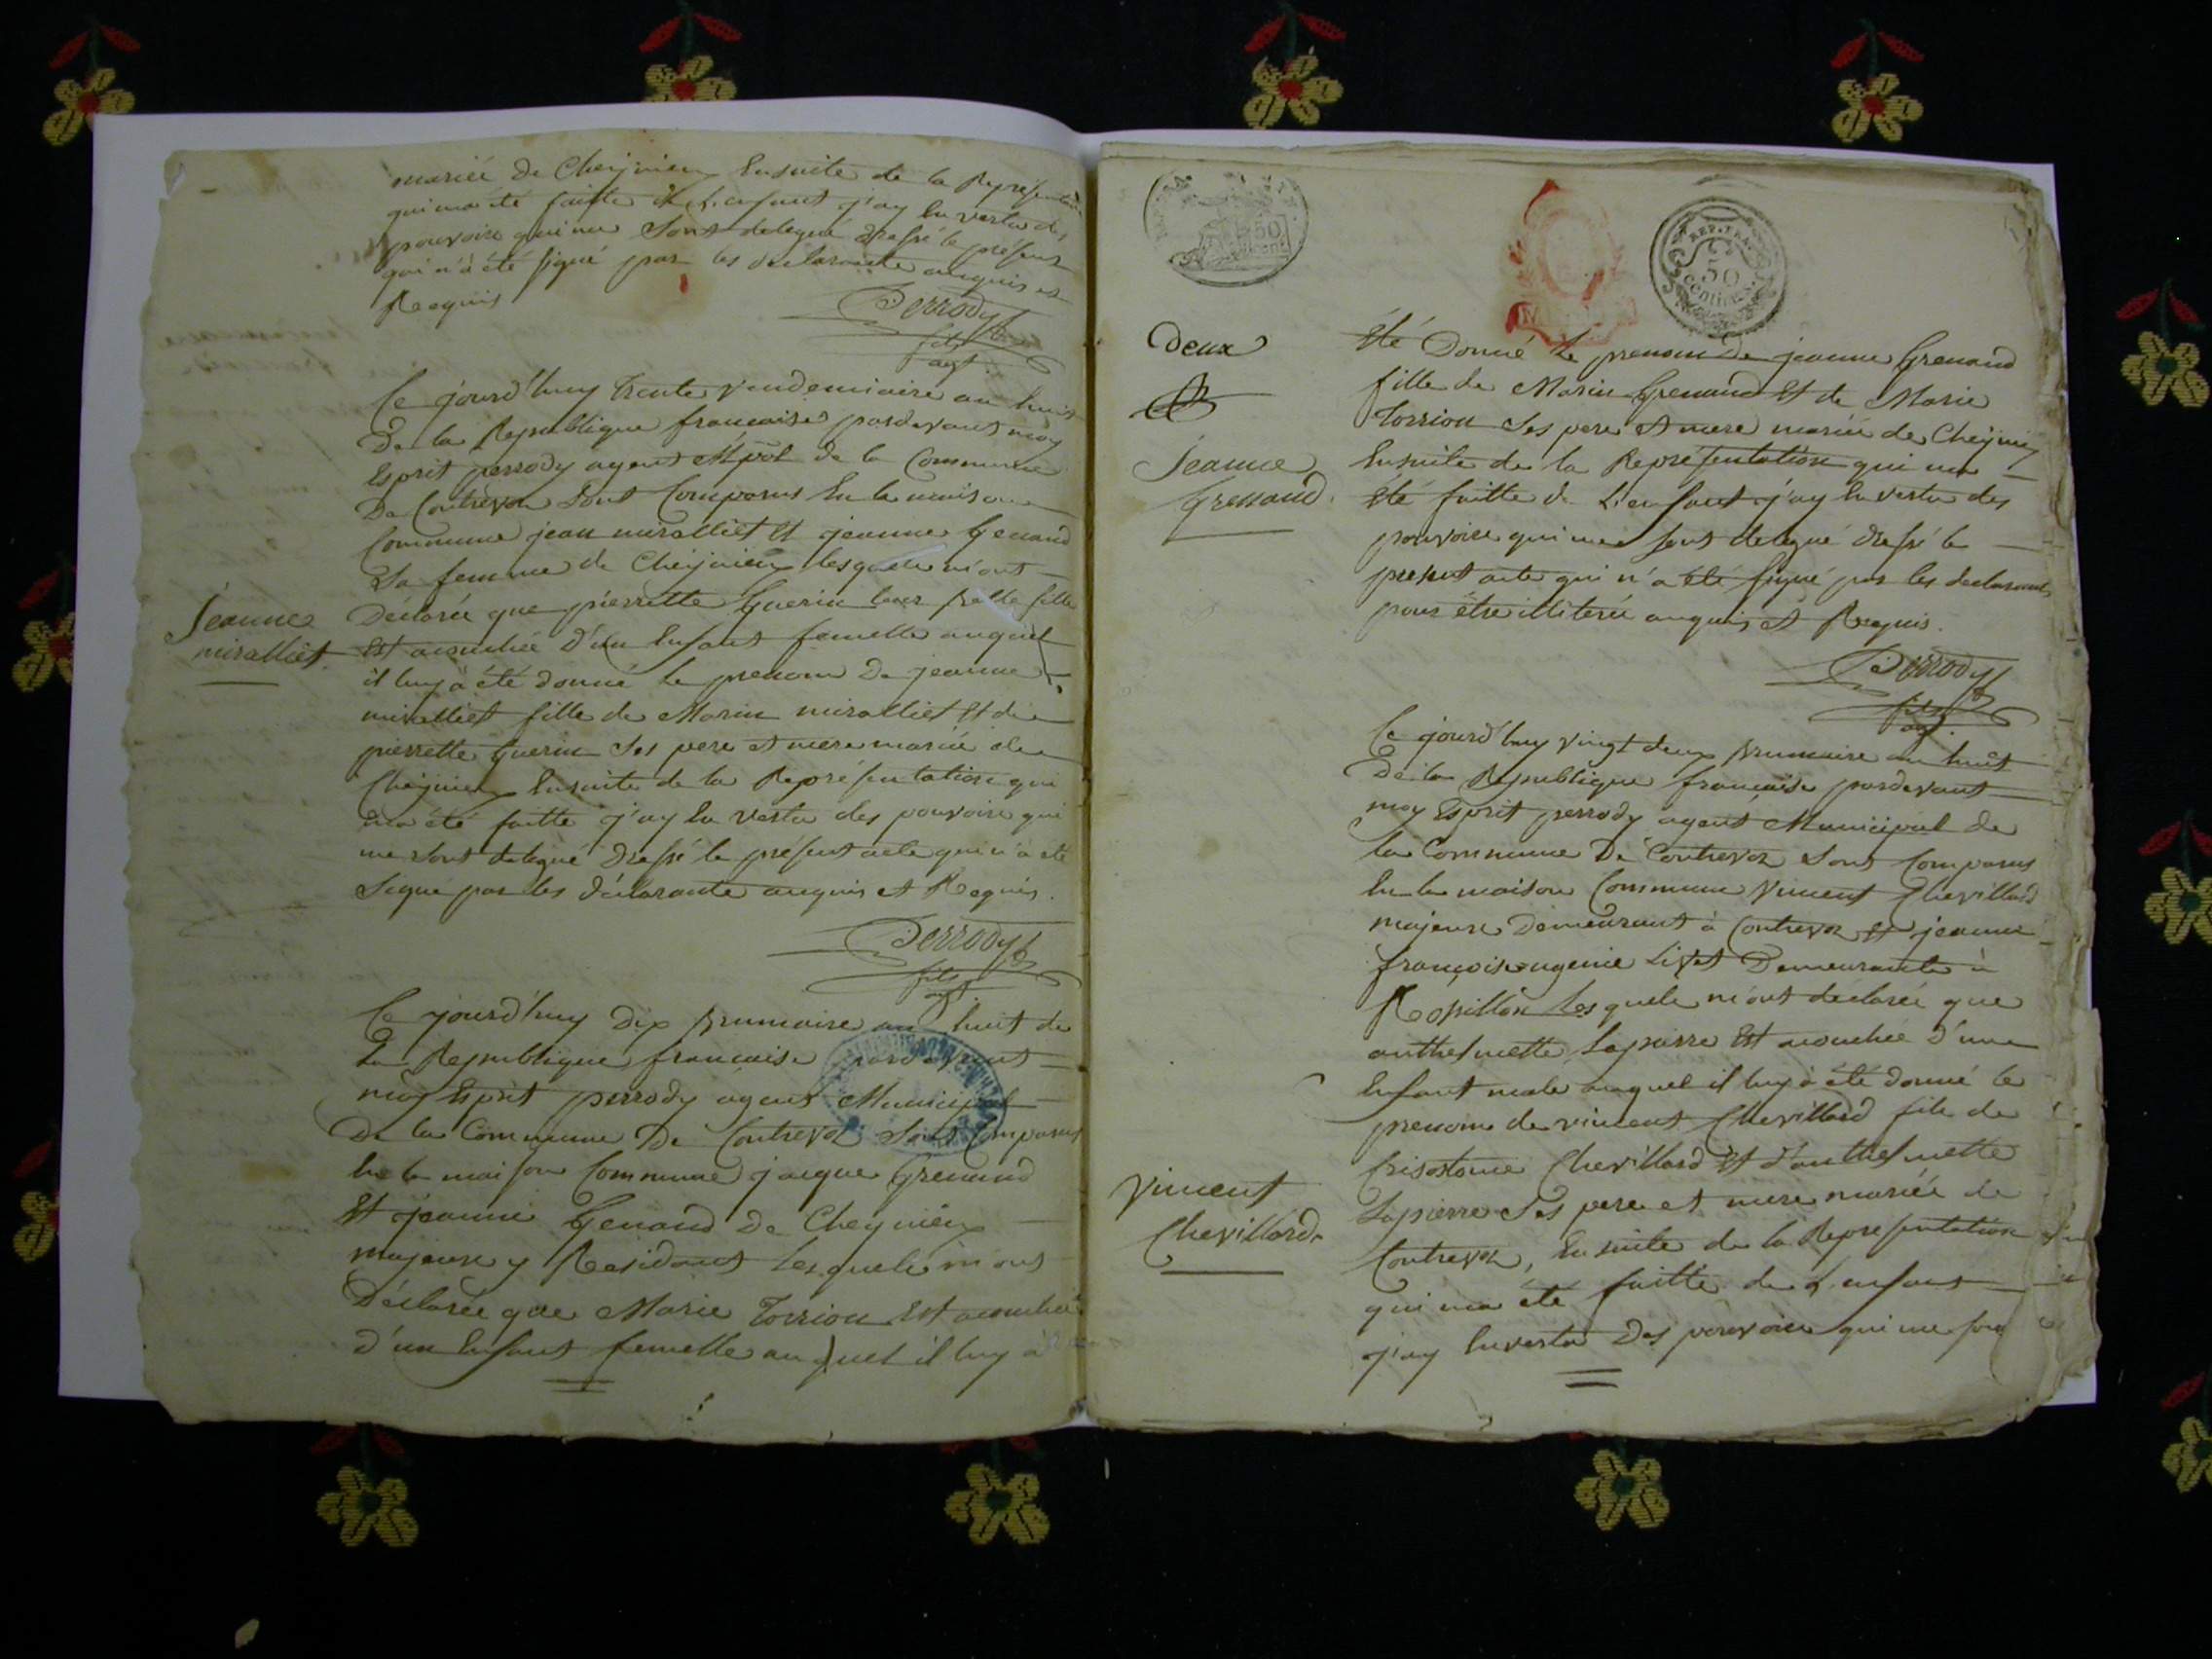 mariée de Cheignieu Ensuite de la Représentation
qui ma été faitte de L'enfant j'ay En vertu des
pouvoire qui me Sont delegué dressé le présent
qui n'a été signé par les déclarante enquis et
Requis
Perrody
fils
agt.
Ce jourd'huy trente vendemiaire an huit
De la Republique francaise pardevant moy
Esprit perrody agent Mpal de la Commune
De Contrevoz Sont Comparus En la maison
Commune jean miralliet Et jeanne Genand
Sa femme de Cheignieu lesquels m'ont
Déclarée que pierrette Guerin leur belle fille
Est acouchée d'un Enfant femelle auquel
il luy à été donné le prenom De jeanne
miralliet fille de Marin miralliet Et de
pierrette Guerin Ses pere et mere mariée de
Cheignieu Ensuite de la Représentation qui
ma été faitte j'ay En vertu des pouvoire qui
me Sont delegué dressé le présent acte qui n'à été
Signé par les déclarante enquis et Requis.
Jeanne
miralliet.
Perrody
fils
agt
Ce jourd'huy dix brumaire an huit de
La Republique francaise pardevant
moy Esprit perrody agent Municipal
De la Commune De Contrevoz Sont Comparus
En la maison Commune jacque Grenand
Et jeanne Genand De Cheignieu
majeure y Residant Lesquels m'ont
Déclarée que Marie Torrion Est acouchée
d'un Enfant femelle auquel il luy à
50
REP. FRA.
50
centimes
Deux
Eté Donné Le prenom De jeanne Grenand
fille de Marin Grenand Et de Marie
Torrion Ses pere et mere mariée de Cheignieu
Ensuite de la Représentation qui ma
Eté faitte de L'enfant j'ay En vertu des
pouvoire qui me sont delegué dressé le
présent acte qui n'a été signé par les declarant
pour être illiteree enquis et Requis.
Jeanne
Grenand.
Perrody
fils
agt.
Ce jourd'huy vingt deux brumaire an huit
De la Republique française pardevant
moy Esprit perrody agent Municipal de
la Commune De Contrevoz Sont Comparus
En la maison Commune Vincent Chevillard
majeure Demeurant à Contrevoz Et jeanne
françoise ugenie Livet Demeurante à
Rossillon Lesquels m'ont déclarée que
anthelmette Lapierre Est acouchée d'un
Enfant male auquel il luy à été donné le
prenom de vincent Chevillard fils de
Crisostome Chevillard Et d'anthelmette
Lapierre Ses pere et mere mariée de
Contrevoz, Ensuite de la Representation
qui ma été faitte de L'enfant
j'ay En vertu Des pouvoire qui me son
Vincent
Chevillard.